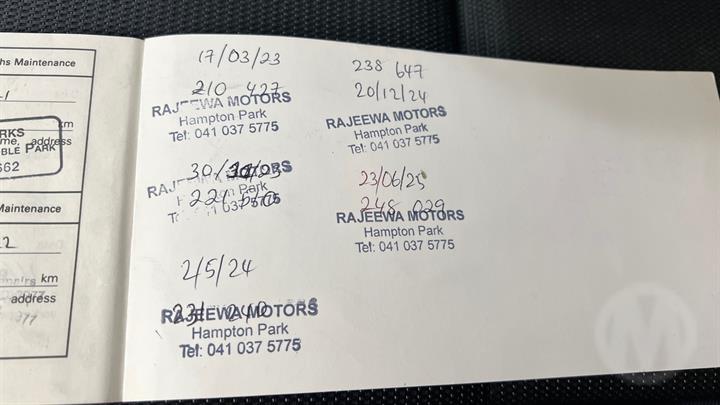 ths Maintenance
km
me, address
RKS
BLE PARK
662
Maintenance
km
address
17/03/23
210 427
RAJEEWA MOTORS
Hampton Park
Tel: 041 037 5775
30/
221
037 5775
2/5/24
231 240
RAJEEWA MOTORS
Hampton Park
Tel: 041 037 5775
238 647
20/12/24
RAJEEWA MOTORS
Hampton Park
Tel: 041 037 5775
23/06/25
248 029
RAJEEWA MOTORS
Hampton Park
Tel: 041 037 5775
M